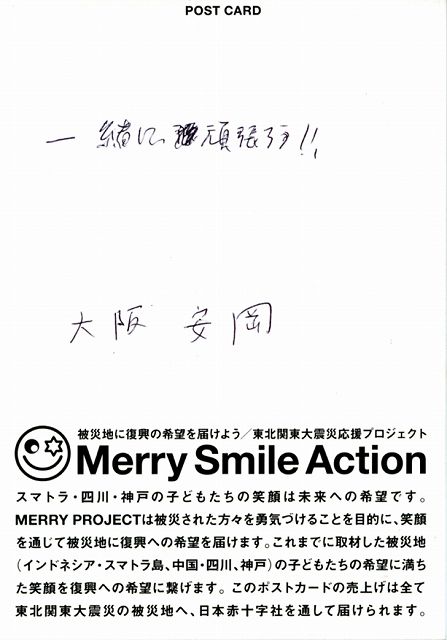 POST CARD
一緒に、頑張ろう!!
大阪 安岡
被災地に復興の希望を届けよう／東北関東大震災応援プロジェクト
Merry Smile Action
スマトラ・四川・神戸の子どもたちの笑顔は未来への希望です。
MERRY PROJECTは被災された方々を勇気づけることを目的に、笑顔
を通じて被災地に復興への希望を届けます。これまでに取材した被災地
（インドネシア・スマトラ島、中国・四川、神戸）の子どもたちの希望に満ち
た笑顔を復興への希望に繋げます。このポストカードの売上げは全て
東北関東大震災の被災地へ、日本赤十字社を通して届けられます。